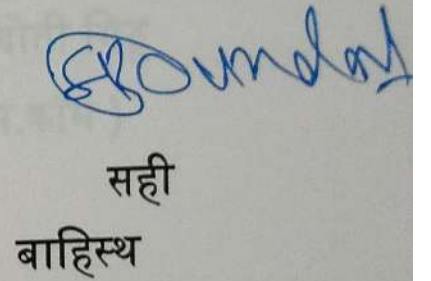 सही
बाहिस्थ